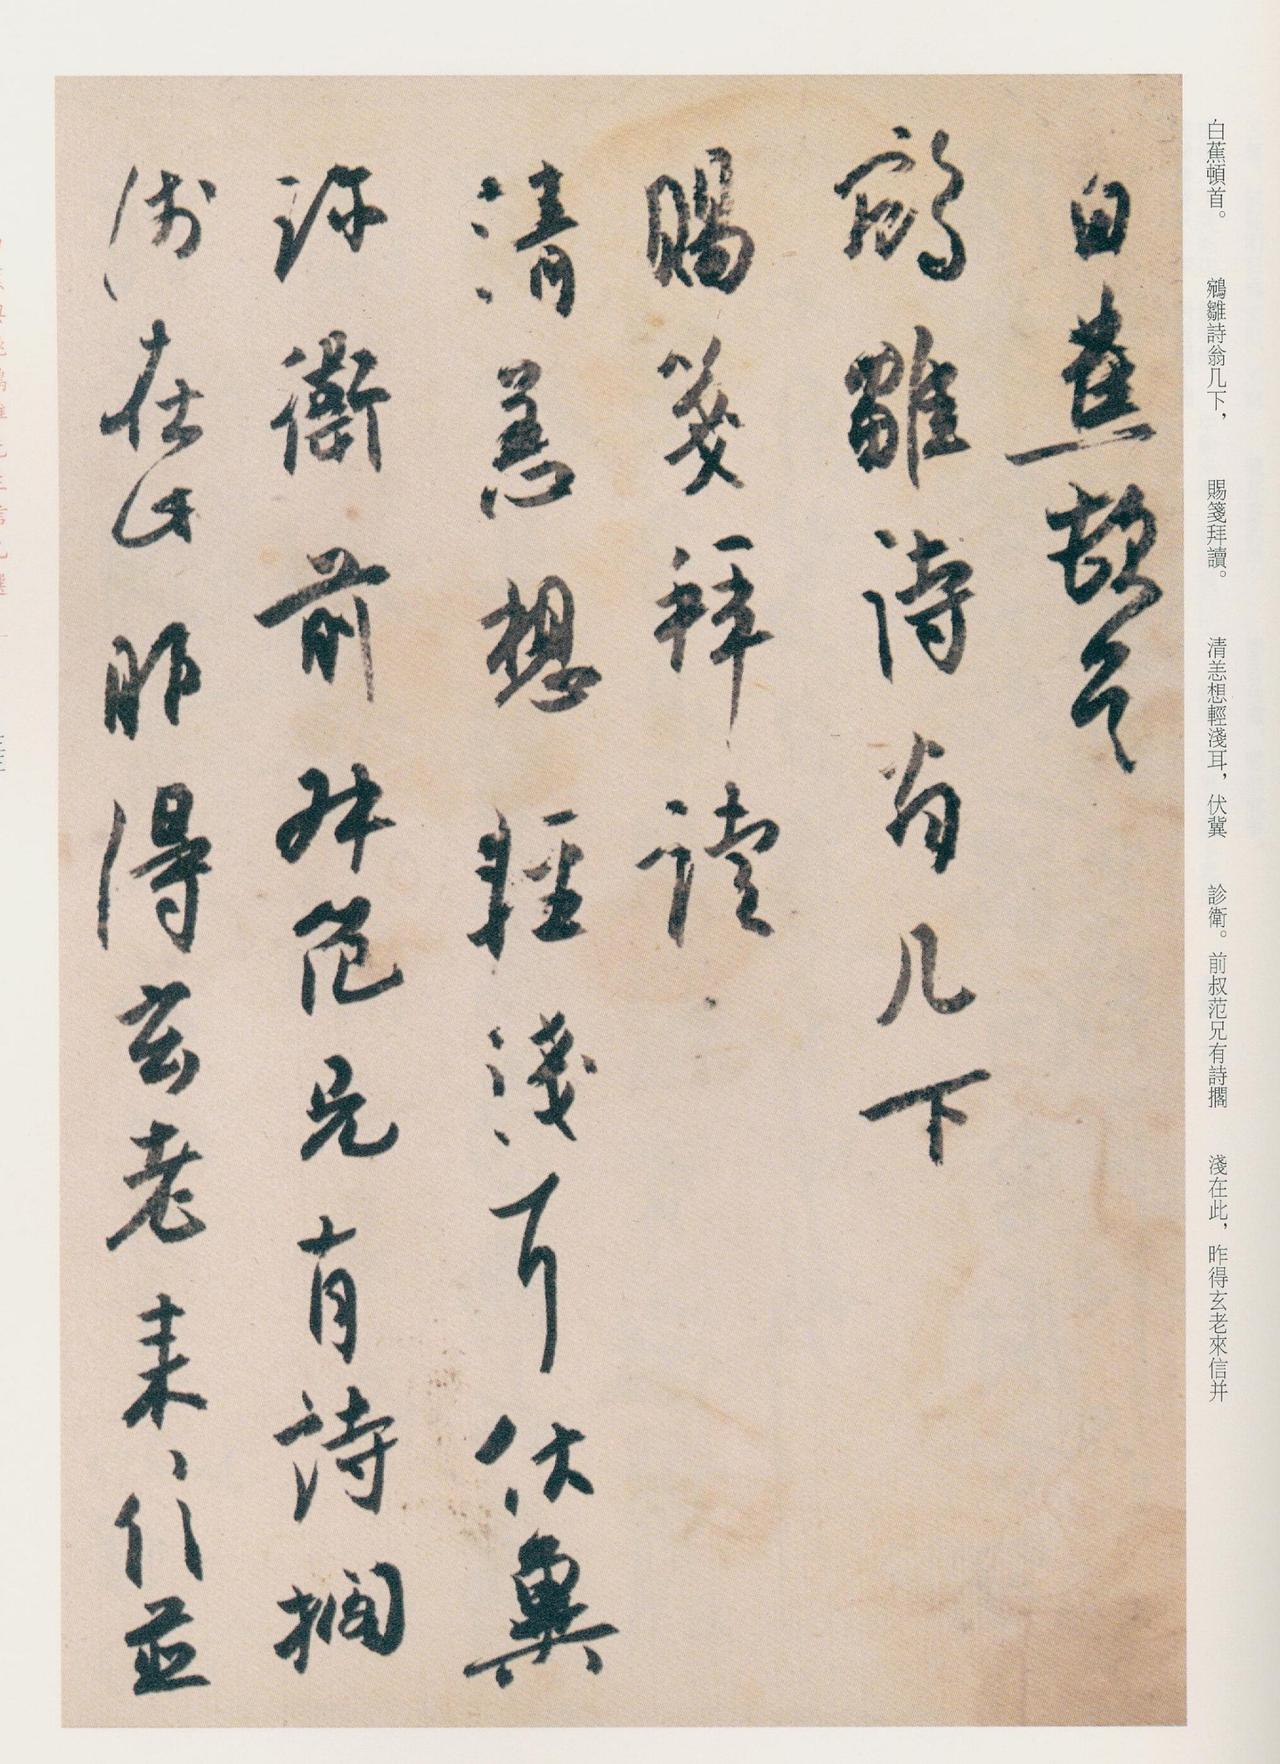 白蕉頓首。 鵷雛詩翁几下， 賜箋拜讀。 清恙想輕淺耳，伏冀 診衛。前叔范兄有詩擱 淺在此，昨得玄老來信并
白蕉頓首
鵷雛詩翁几下
賜箋拜讀
清恙想輕淺耳伏冀
珍衛前叔范兄有詩擱
淺在此昨得玄老來信並